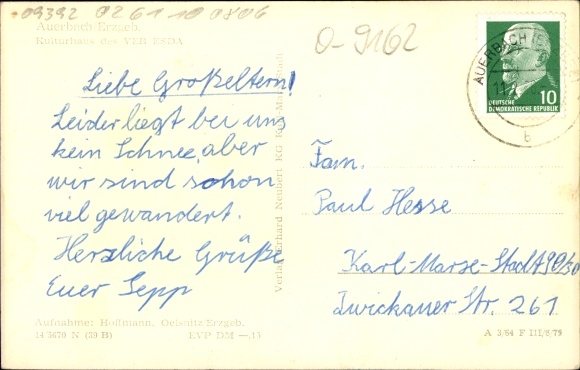 09392 0261 10 0806
Auerbach/Erzgeb.
Kulturhaus des VEB ESDA
O-9162
AUERBACH
10
DEUTSCHE
DEMOKRATISCHE REPUBLIK
b
Liebe Großeltern!
Leider liegt bei uns
kein Schnee, aber
wir sind schon
viel gewandert.
Herzliche Grüße
Euer Sepp
Fam.
Paul Hesse
Karl-Marx-Stadt A 90/30
Zwickauer Str. 261
Aufnahme: Hoffmann, Oelsnitz/Erzgeb.
14/5670 N (39 B) EVP DM —.15
A 3/64 F III/6/75
Verlag Erhard Neubert KG